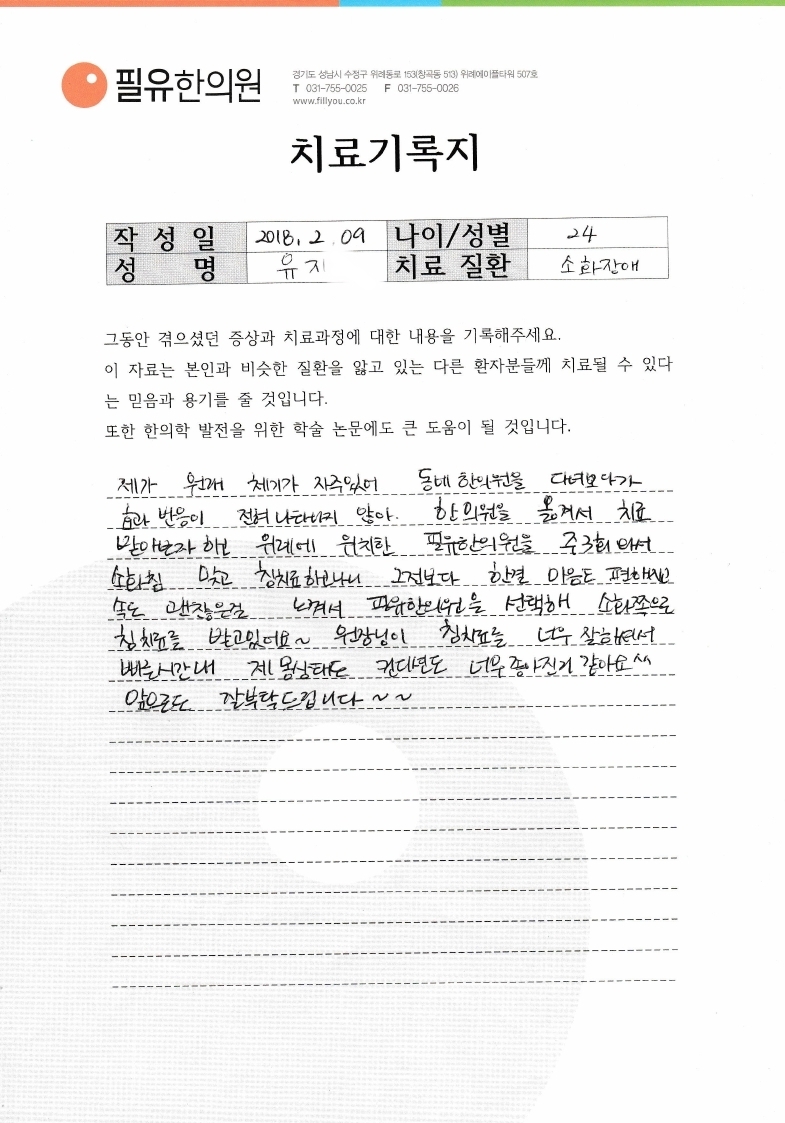 필유한의원
경기도 성남시 수정구 위례동로 153(창곡동 513) 위례에이플타워 507호
T 031-755-0025 F 031-755-0026
www.fillyou.co.kr
치료기록지
작 성 일 2018. 2. 09 나이/성별 24
성 명 유지 치료 질환 소화장애
그동안 겪으셨던 증상과 치료과정에 대한 내용을 기록해주세요.
이 자료는 본인과 비슷한 질환을 앓고 있는 다른 환자분들께 치료될 수 있다
는 믿음과 용기를 줄 것입니다.
또한 한의학 발전을 위한 학술 논문에도 큰 도움이 될 것입니다.
제가 원래 체기가 자주있어 동네 한의원을 다녀보다가
효과 반응이 전혀 나타나지 않아. 한의원을 옮겨서 치료
받아보자 하고 위례에 위치한 필유한의원을 주 3회 와서
소화침 맞고 침치료하고나니 그전보다 한결 마음도 편해지고
속도 괜찮은걸 느껴서 필유한의원을 선택해 소화쪽으로
침치료를 받고있어요~ 원장님이 침치료를 너무 잘하셔서
빠른시간내 제 몸상태도 컨디션도 너무 좋아진거 같아요^^
앞으로도 잘부탁드립니다~~